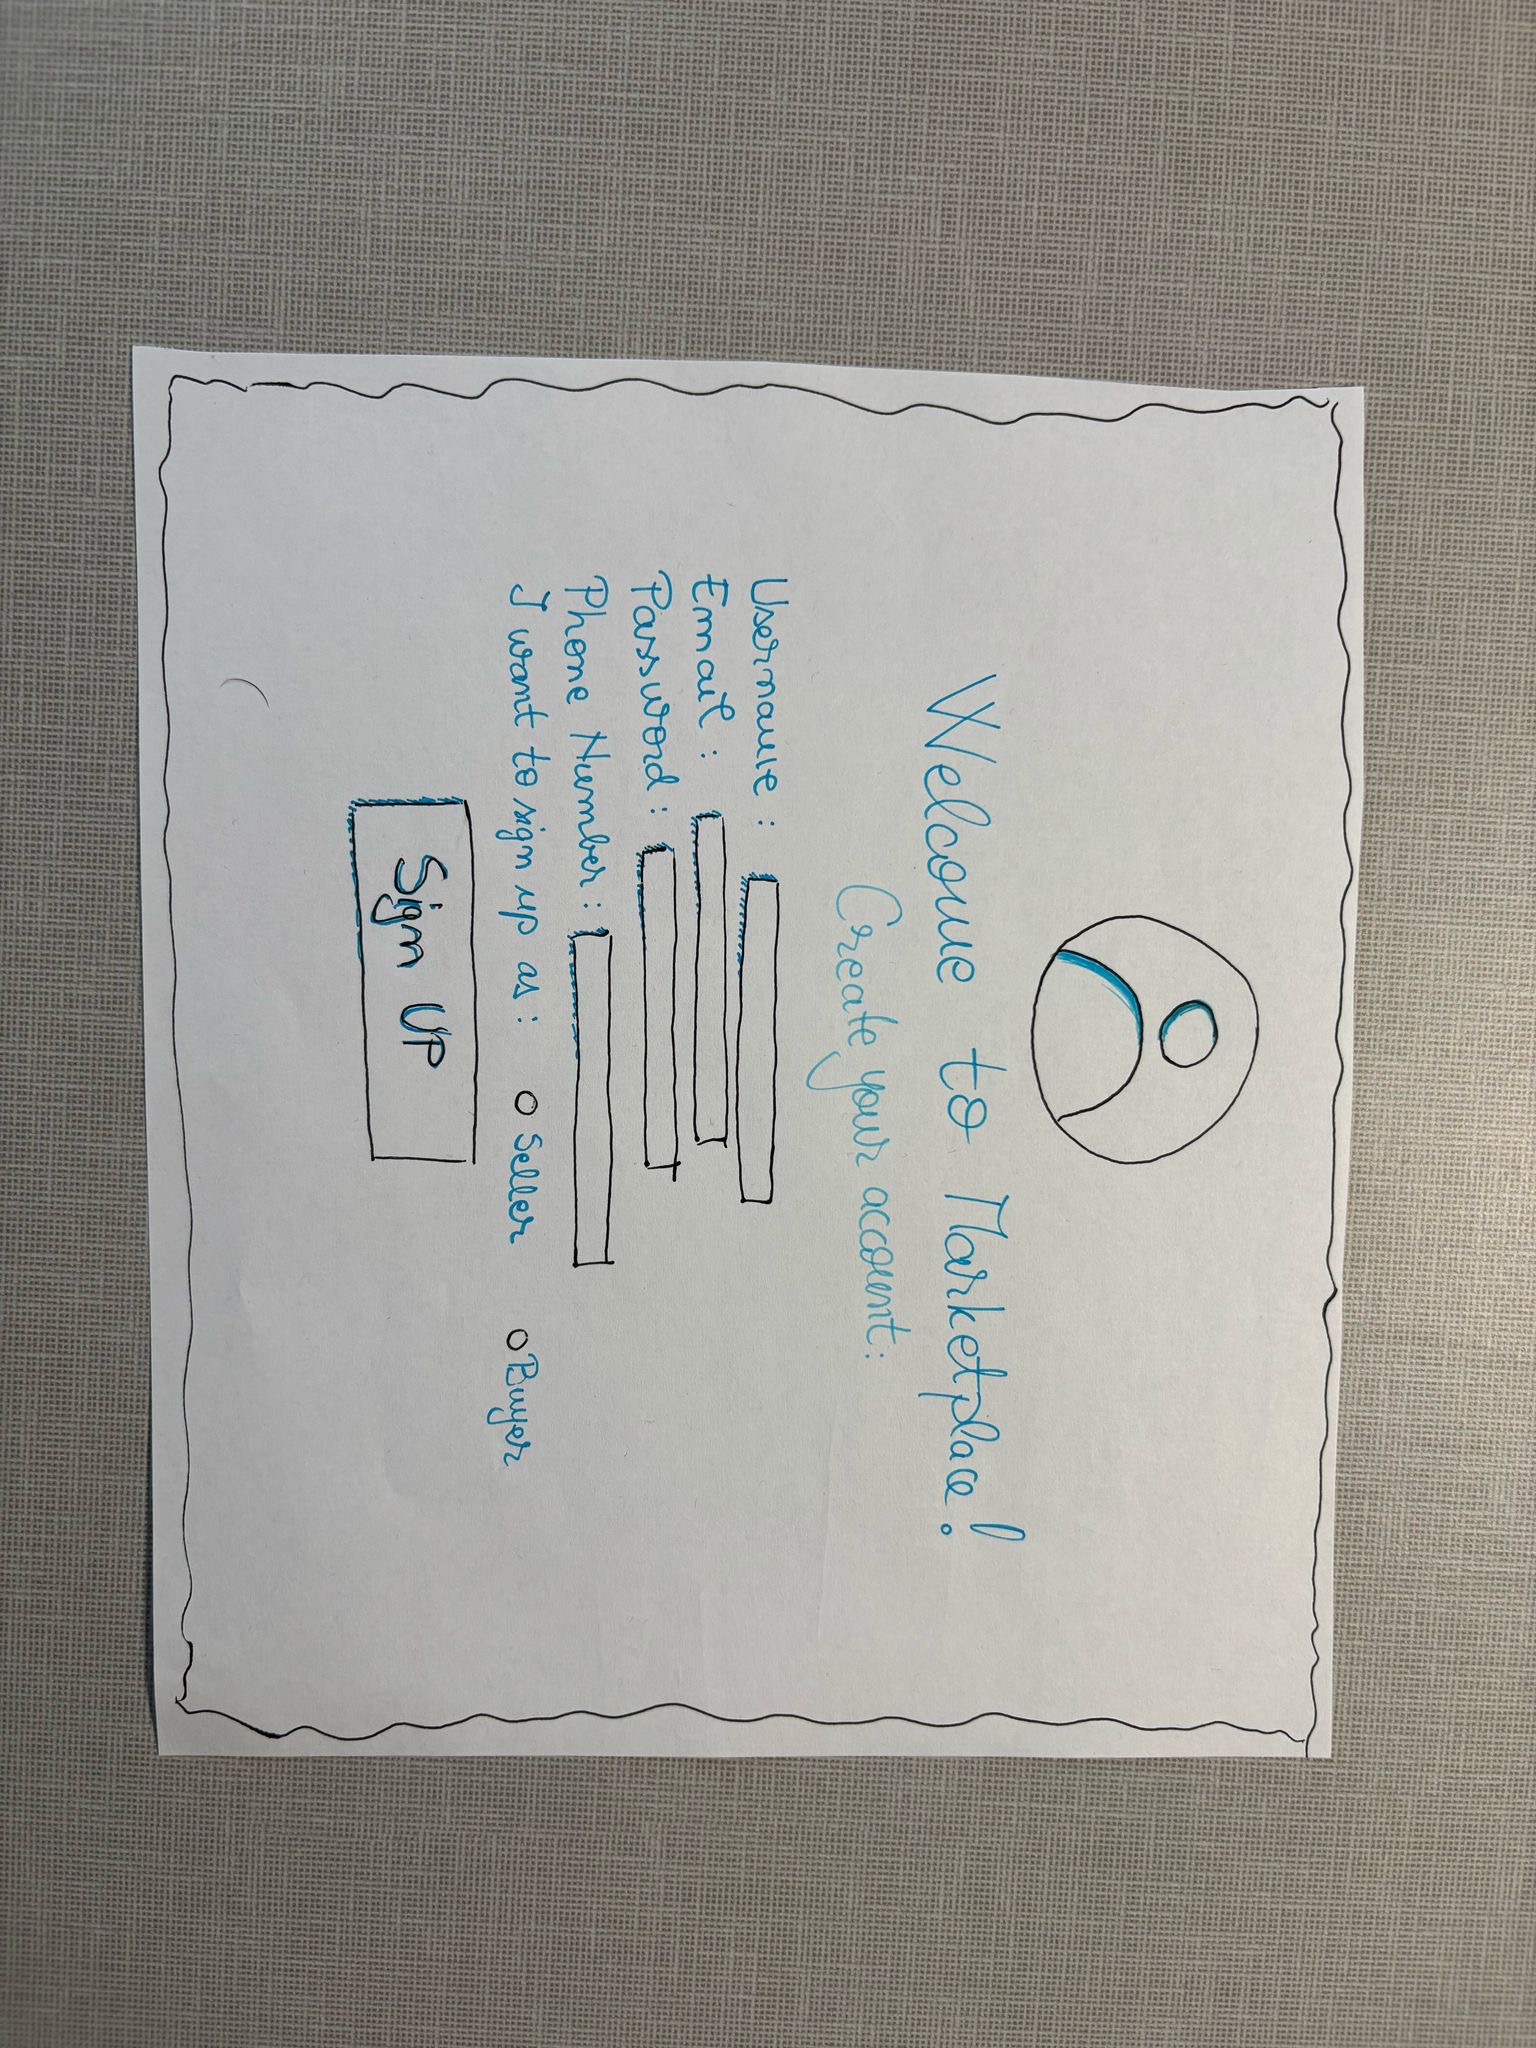 Welcome to Marketplace!
Create your account:
Username:
Email:
Password:
Phone Number:
I want to sign up as: Seller Buyer
Sign UP